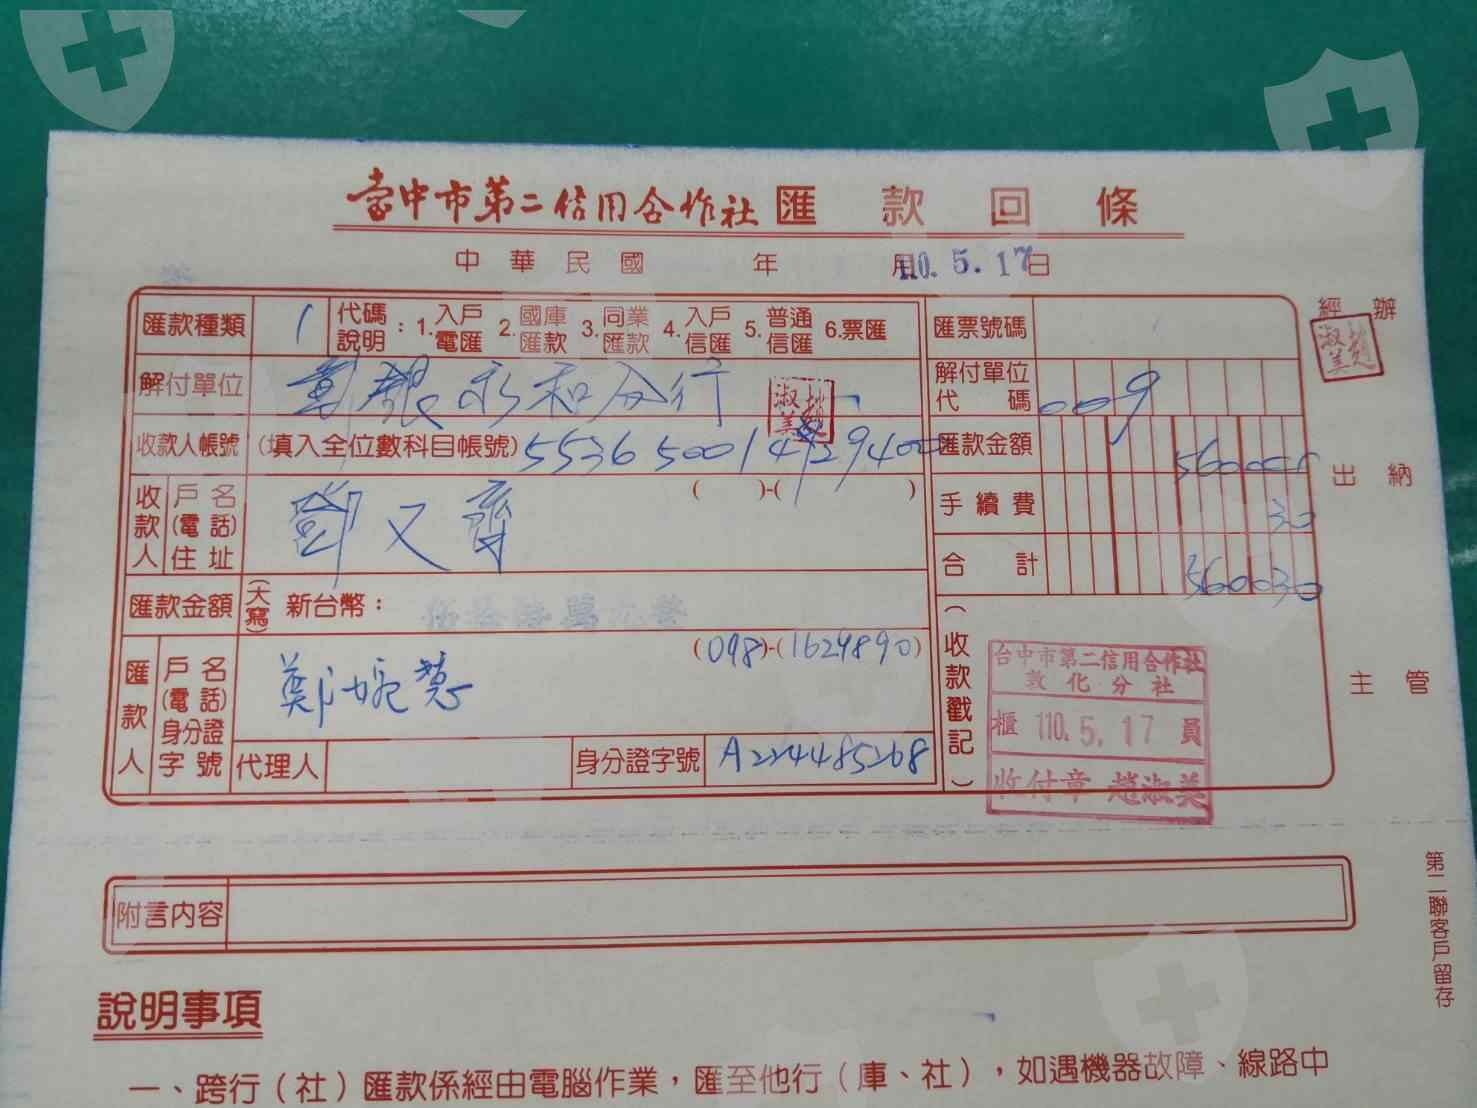 臺中市第二信用合作社 匯款回條
中華民國 年 月 110.5.17 日
匯款種類 1 代碼說明：1.入戶電匯 2.國庫匯款 3.同業匯款 4.入戶信匯 5.普通信匯 6.票匯 匯票號碼
經辦
趙淑美
解付單位 永和分行 趙淑美 解付單位代碼 009
收款人帳號 (填入全位數科目帳號) 匯款金額
出納
收款人 戶名(電話)住址 鄧又齊 ( )-( ) 手續費 30
合計 560030
匯款金額 (大寫) 新台幣：
匯款人 戶名(電話)身分證字號 鄭婉慧 (098)-(1629890)
代理人 身分證字號 A224485268
(收款戳記)
台中市第二信用合作社
敦化分社
櫃 110.5.17 員
收付章 趙淑美
主管
附言內容
第二聯客戶留存
說明事項
一、跨行（社）匯款係經由電腦作業，匯至他行（庫、社），如遇機器故障、線路中